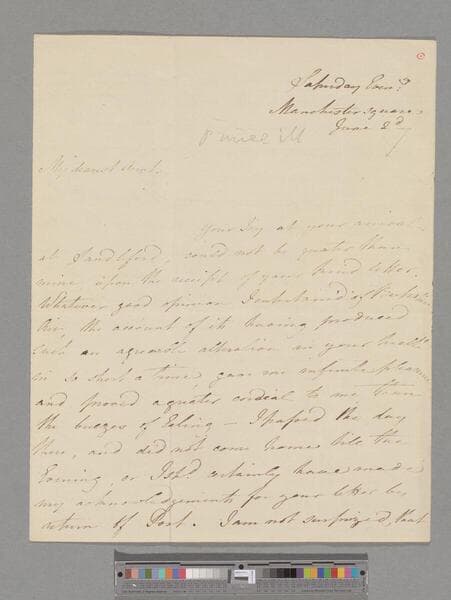 Saturday Even.g
Manchester Square
June 2d
My dearest Aunt
Your Joy at your arrival
at Sandleford, could not be greater than
mine upon the receipt of your kind letter.
Whatever good opinion I entertained of
Air, the account of its having produced
such an agreable alteration in your health
in so short a time, gave me infinite pleasure
and proved a greater cordial to me than
the breezes of Ealing — I passed the day
there, and did not come home till the
Evening, or I shd. certainly have made
my acknowledgements for your letter by
return of Post. I am not surprized that